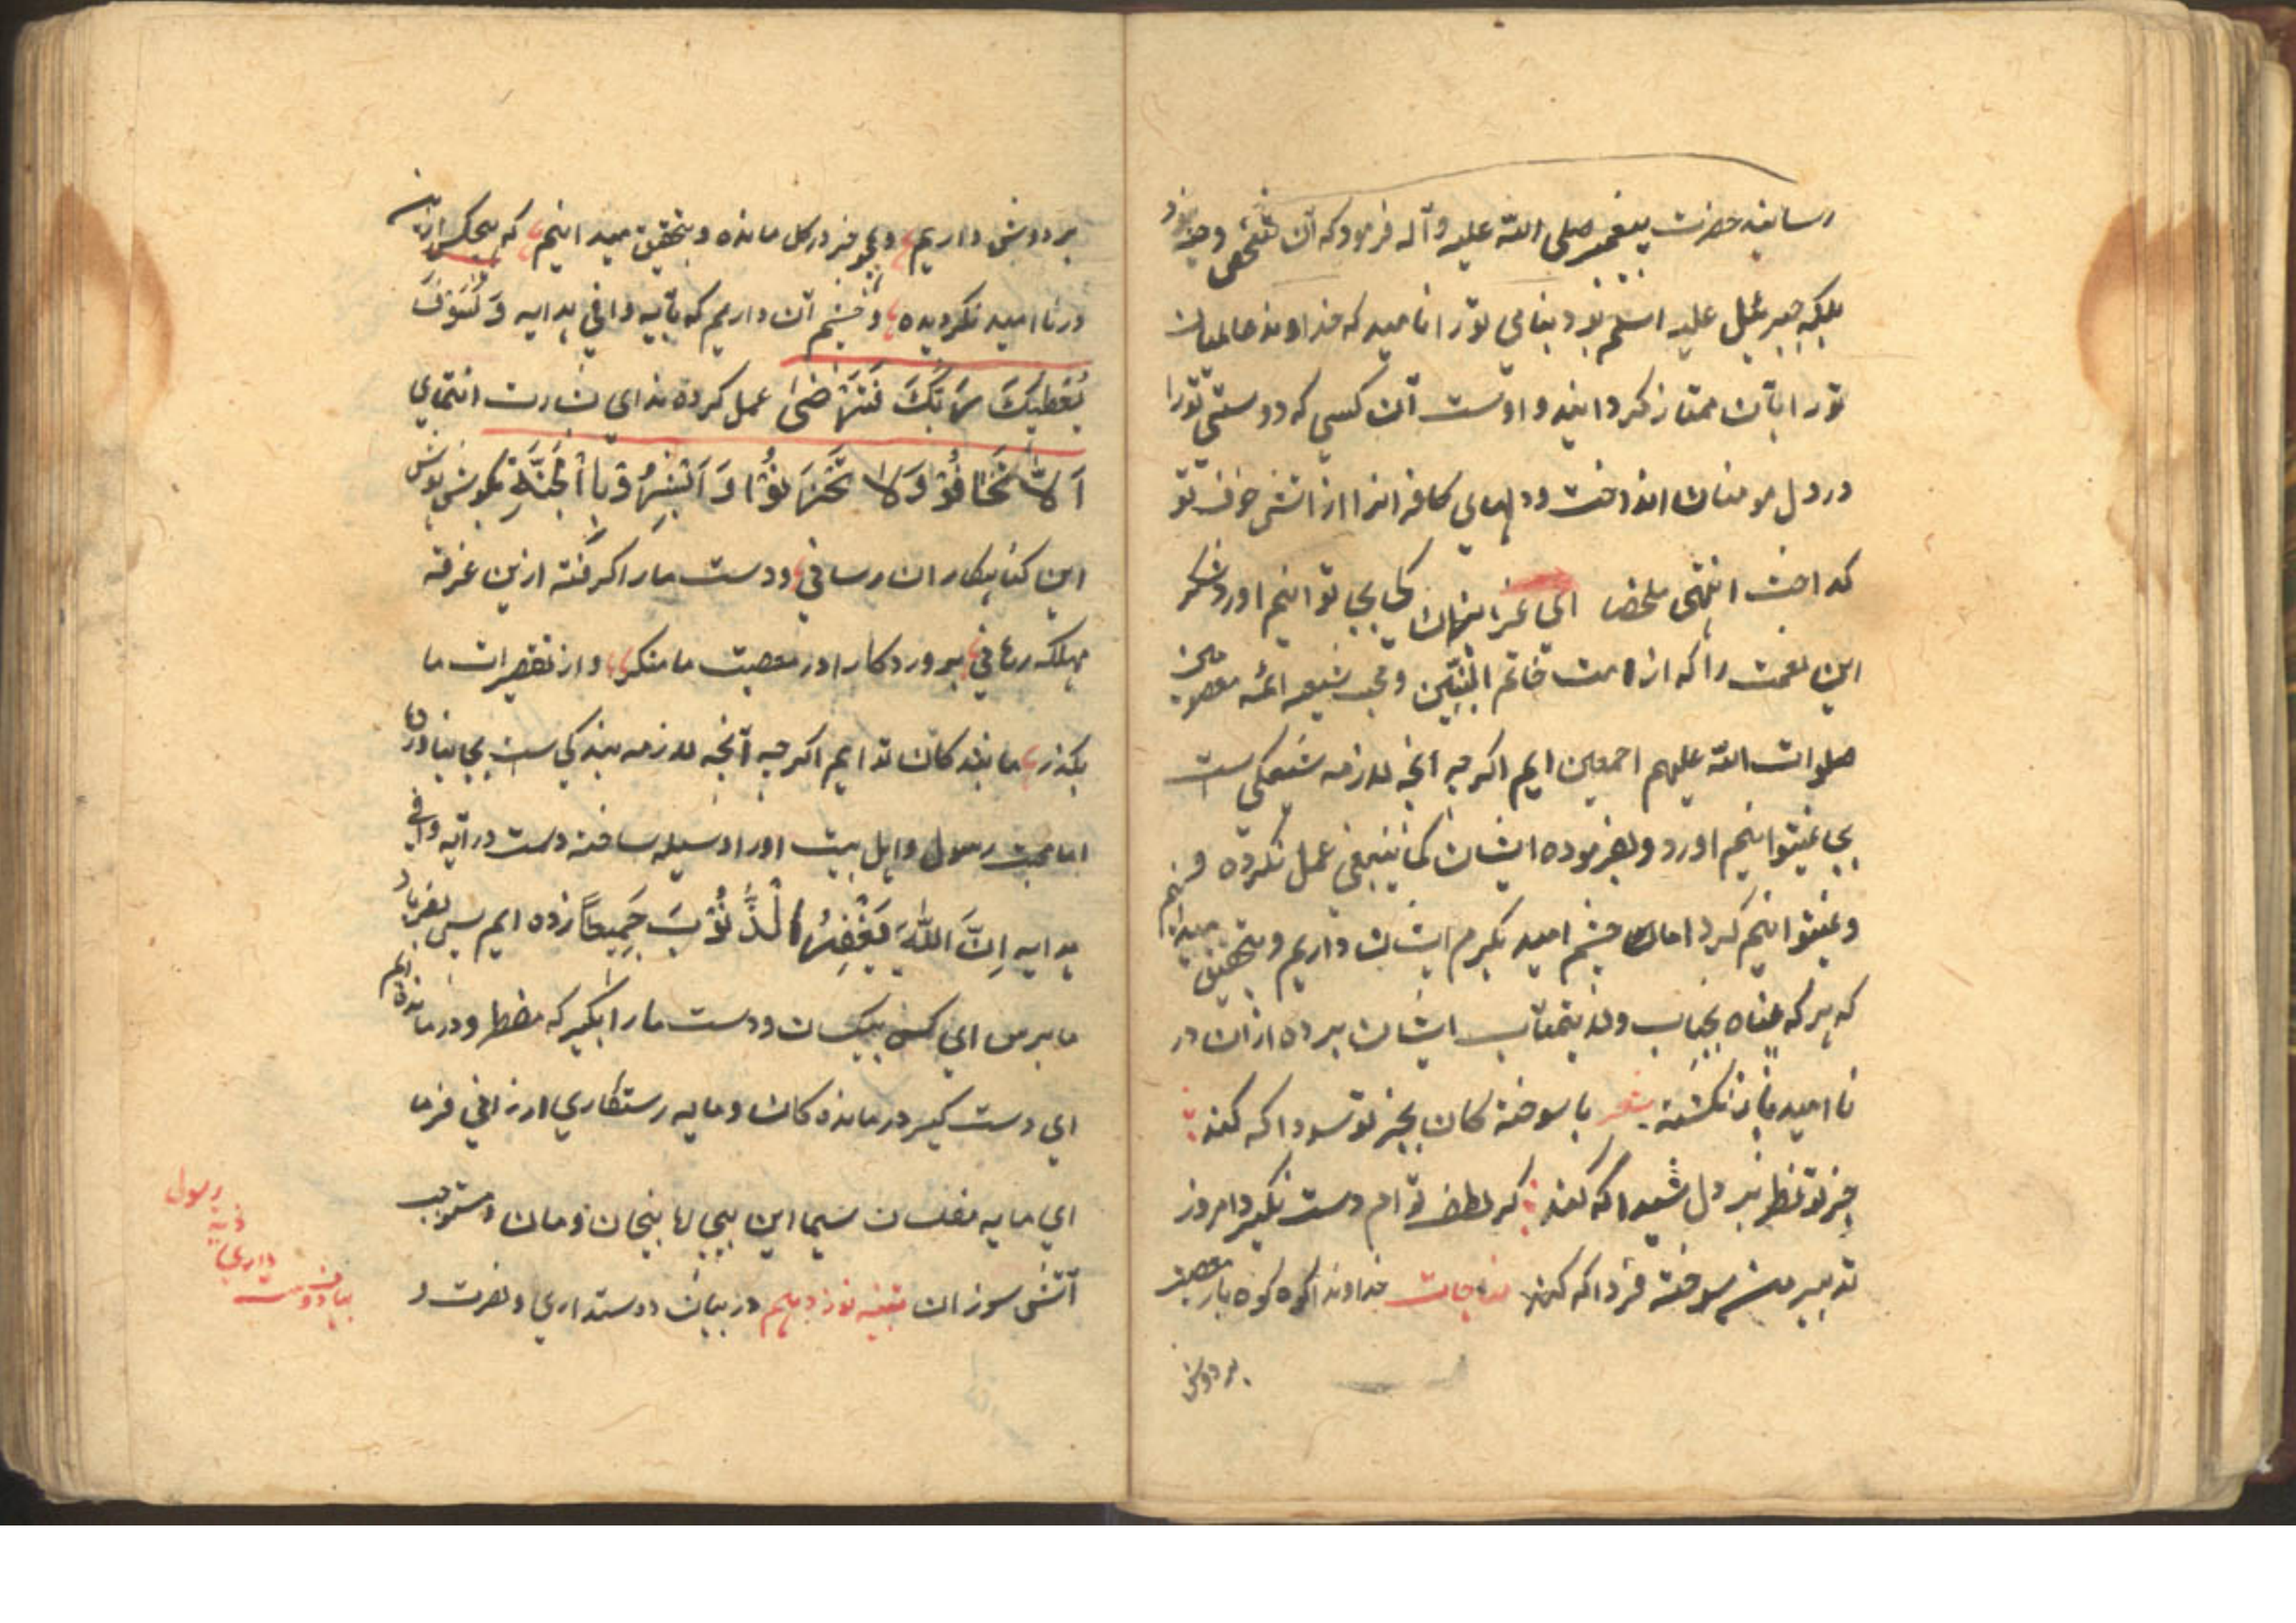 رسانید حضرت پیغمبر صلی الله علیه و آله فرمود که آن شخص دحیه نبود
بلکه جبرئیل علیه السلم بود بنامی تو را نامید که خداوند عالمیان
تو را بآن ممتاز کردانید و اوست آن کسی که دوستی تو را
در دل مومنان انداخت و دلهای کافرانرا از آتش خوف تو
کداخت انتهی ملخصا ای عزایزان کی بجا توانیم آورد شکر
این نعمت را که از امت خاتم النبیین و محب شیعه ائمه معصومین
صلوات الله علیهم اجمعین ایم اکرچه آنچه لازمه شیعکی است
بجا نمیتوانیم آورد و بفرموده ایشان کما ینبغی عمل نکرده ایم
و نمیتوانیم کرد اما چشم امید بکرم ایشان داریم و بتحقیق میدانیم
که هر که پناه بجناب ولایتمآب ایشان برده از آن در
ناامید باز نکشته شعر با سوختهکان بجز تو سودا که کند
جز تو نظر بر دل شیدا که کند که لطف توام دست نکیرد امروز
تدبیر من سوخته فردا که کند مناجات خداوندا کوه کوه بار معصیت
بر دوش
بر دوش داریم و چو خر در کل مانده و بتحقیق میدانیم که هیچکس از این
در ناامید نکردیده و چشم آن داریم که بآیه وافی هدایه وَلَسَوْفَ
یُعْطِیكَ رَبُّكَ فَتَرْضَى عمل کرده ندای بشارت انتمای
اَلَّا تَخَافُوْا وَلَا تَحْزَنُوْا وَاَبْشِرُوْا بِالْجَنَّةِ بکوش هوش
این کناهکاران رسانی و دست ما را کرفته ازین غرقه
مهلکه رهانی پروردکارا در معصیت ما منکر و از تقصیرات ما
بکذر ما بندهکان تو ایم اکرچه آنچه لازمه بندکی است بجا نیاورده
اما محبت رسول و اهل بیت او را وسیله ساخته دست در آیه وافی
هدایه اِنَّ اللّٰهَ یَغْفِرُ الْذُّنُوْبَ جَمِیعًا زده ایم پس بفریاد
ما برس ای کس بیکسان و دست ما را بکیر که مضطر و درمانده ایم
ای دست کیر درماندهکان و مایه رستکاری ارزانی فرما
ای مایه مفلسان سیما این بیچان و مان و مستوجب
آتش سوزان تنبیه نوزدهم در بیان دوستداری و نصرت و
رسول
ذریه
داری
بیان دوست